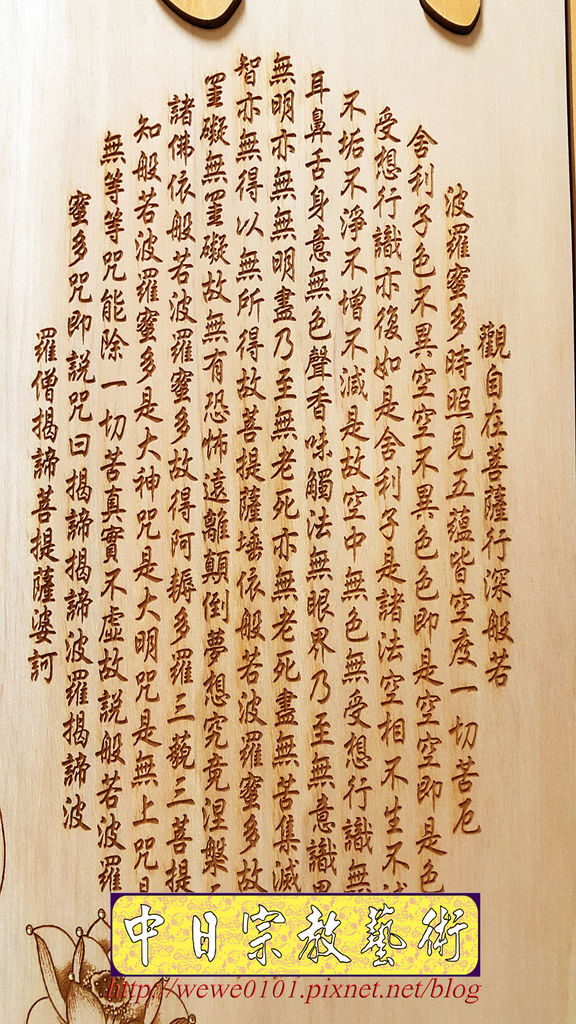 觀自在菩薩行深般若
波羅蜜多時照見五蘊皆空度一切苦厄
舍利子色不異空空不異色色即是空空即是色
受想行識亦復如是舍利子是諸法空相不生不
不垢不淨不增不減是故空中無色無受想行識無
耳鼻舌身意無色聲香味觸法無眼界乃至無意識界
無明亦無無明盡乃至無老死亦無老死盡無苦集滅
智亦無得以無所得故菩提薩埵依般若波羅蜜多故
罣礙無罣礙故無有恐怖遠離顛倒夢想究竟涅槃
諸佛依般若波羅蜜多故得阿耨多羅三藐三菩提
知般若波羅蜜多是大神咒是大明咒是無上咒是
無等等咒能除一切苦真實不虛故說般若波羅
蜜多咒即說咒曰揭諦揭諦波羅揭諦波
羅僧揭諦菩提薩婆訶
中日宗教藝術
http://wewe0101.pixnet.net/blog